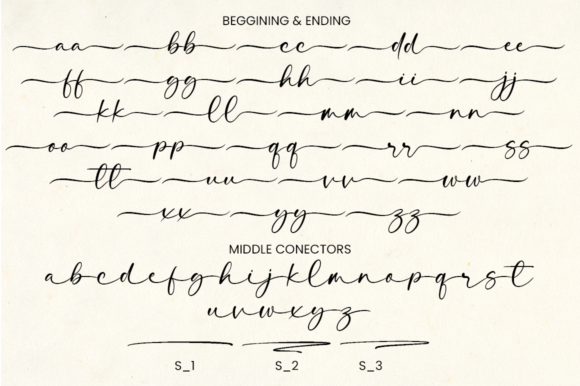 BEGGINING & ENDING
aa bb cc dd ee
ff gg hh ii jj
kk ll mm nn
oo pp qq rr ss
tt uu vv ww
xx yy zz
MIDDLE CONECTORS
abcdefghijklmnopqrst
uvwxyz
S_1 S_2 S_3